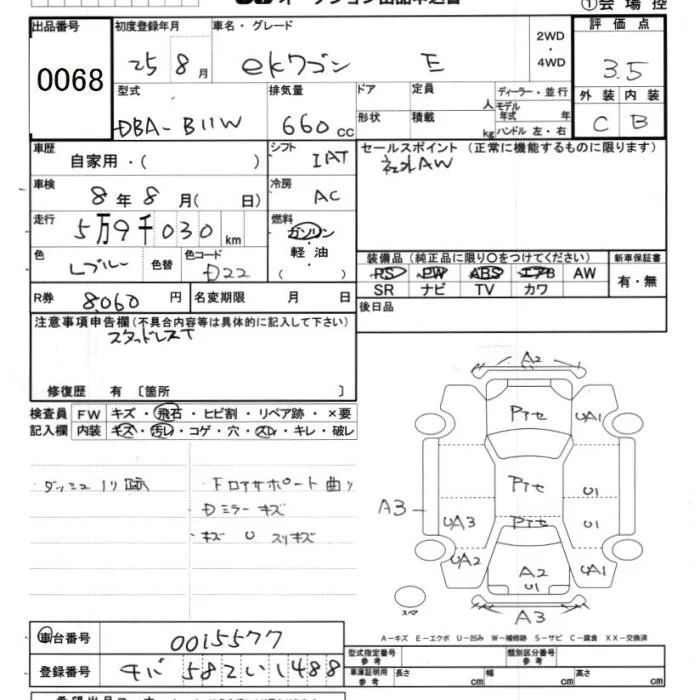 オークション出品申込書
①会場控
出品番号 初度登録年月 車名・グレード 2WD・4WD 評価点
0068 25 8月 ekワゴン E 3.5
型式 排気量 ドア 定員 人 ディーラー・並行 外装 内装
DBA-B11W 660 cc 形状 積載 kg モデル年式 年 ハンドル 左・右 C B
車歴 自家用・( ) シフト IAT セールスポイント (正常に機能するものに限ります)
社外AW
車検 8年8月( 日) 冷房 AC
走行 5万9千030 km 燃料 ガソリン・軽油 ( )
色 Lブルー 色替 色コード D22
装備品 (純正品に限り○をつけてください) 新車保証書
PS PW ABS エアB AW 有・無
SR ナビ TV カワ
R券 8,060円 名変期限 月 日 後日品
注意事項申告欄 (不具合内容等は具体的に記入して下さい)
スタッドレスT
修復歴 有 〔箇所 〕
検査員 FW キズ・飛石・ヒビ割・リペア跡・×要
記入欄 内装 キズ・汚レ・コゲ・穴・スレ・キレ・破レ
ダッシュ 1リ跡 Fロアサポート曲リ
Dミラー キズ
キズ U スリキズ
A2
Pイセ UA1
Pイセ U1
A3 UA3 Pイセ U1
UA2 A2 U1 UA1
スペア A3
A-キズ E-エクボ U-凹み W-補修跡 S-サビ C-腐食 XX-交換済
車台番号 0015577
型式指定番号 参考 類別区分番号 参考
登録番号 チバ 582 い 1488
車庫証明用 参考 長さ cm 幅 cm 高さ cm